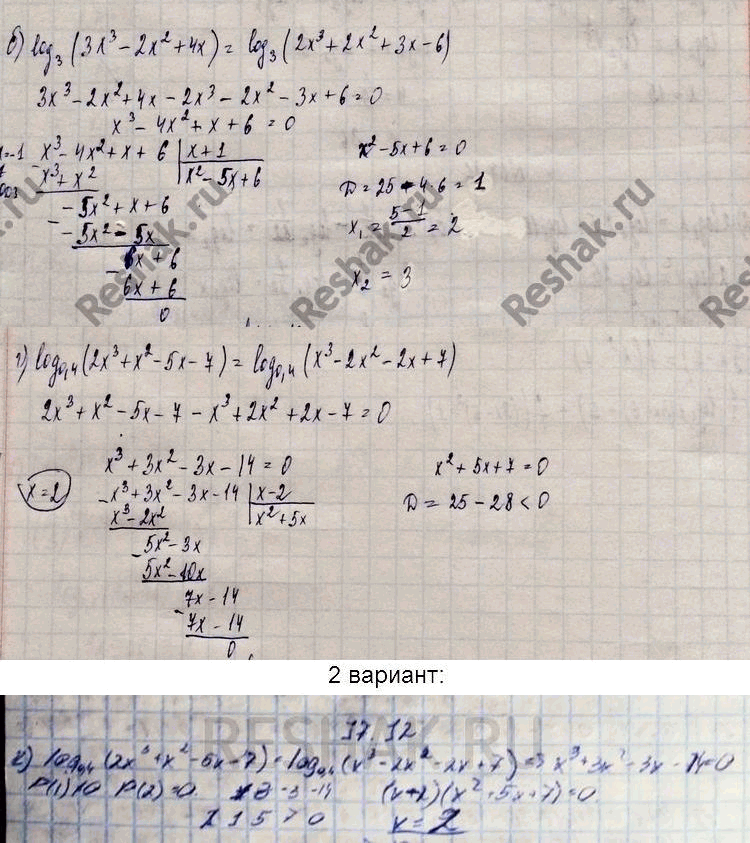 б) log₃(3x³ - 2x² + 4x) = log₃(2x³ + 2x² + 3x - 6)
3x³ - 2x² + 4x - 2x³ - 2x² - 3x + 6 = 0
x³ - 4x² + x + 6 = 0
x=-1 x³ - 4x² + x + 6 | x+1
x³ + x² | x² - 5x + 6
- 5x² + x + 6
- 5x² - 5x
6x + 6
6x + 6
0
x² - 5x + 6 = 0
D = 25 - 4·6 = 1
x₁ = (5-1)/2 = 2
x₂ = 3
Reshak.ru
Reshak.ru
Reshak.ru
г) log₀,₄(2x³ + x² - 5x - 7) = log₀,₄(x³ - 2x² - 2x + 7)
2x³ + x² - 5x - 7 - x³ + 2x² + 2x - 7 = 0
x³ + 3x² - 3x - 14 = 0
x = 2 x³ + 3x² - 3x - 14 | x-2
x³ - 2x² | x² + 5x
5x² - 3x
5x² - 10x
7x - 14
7x - 14
0
x² + 5x + 7 = 0
D = 25 - 28 < 0
2 вариант:
RESHAK.RU
17.12
г) log₀,₄(2x³ + x² - 5x - 7) = log₀,₄(x³ - 2x² - 2x + 7) = x³ + 3x² - 3x - 14 = 0
P(1)≠0 P(2)=0 -3 -14 (x-2)(x² + 5x + 7) = 0
2 1 5 7 0 x = 2